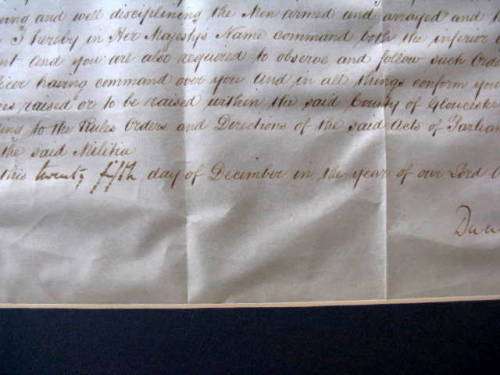 ving and well disciplining the Men armed and arrayed and
I hereby in Her Majestys Name command both the inferior
ent and you are also required to observe and follow such Orde
icer having command over you And in all things conform you
es raised or to be raised within the said County of Gloucest
ing to the Rules Orders and Directions of the said Acts of Parlia
the said Militia
this twenty fifth day of December in the year of our Lord